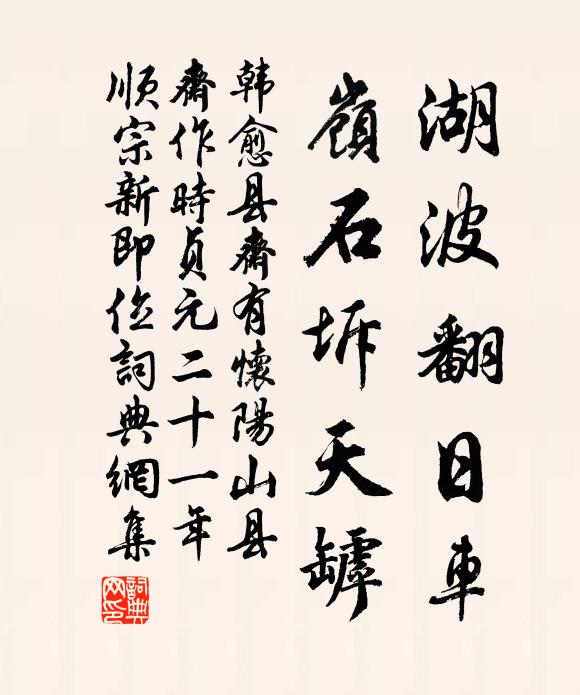 湖波翻日車
嶺石坼天罅
韩愈县齋有懷陽山县
齋作時貞元二十一年
順宗新即位詞典網集
詞典网印